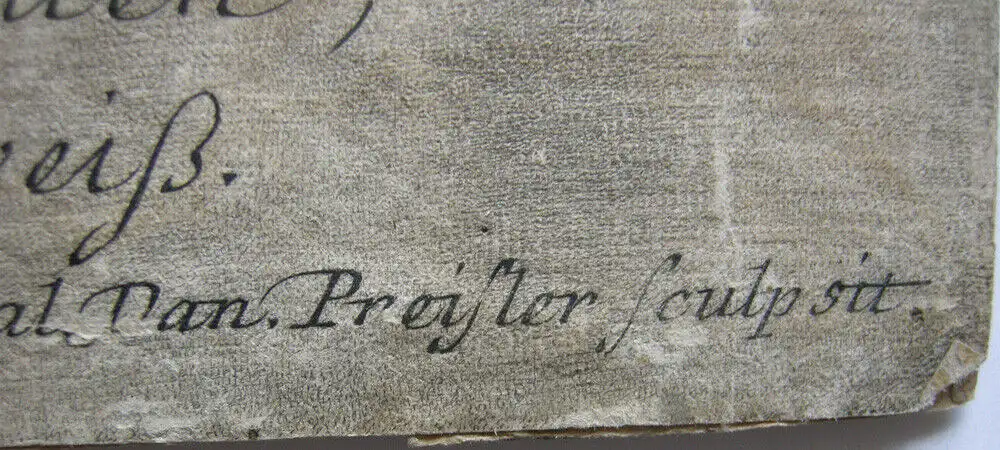 eiß.
al. Dan. Preiſler ſculpsit.